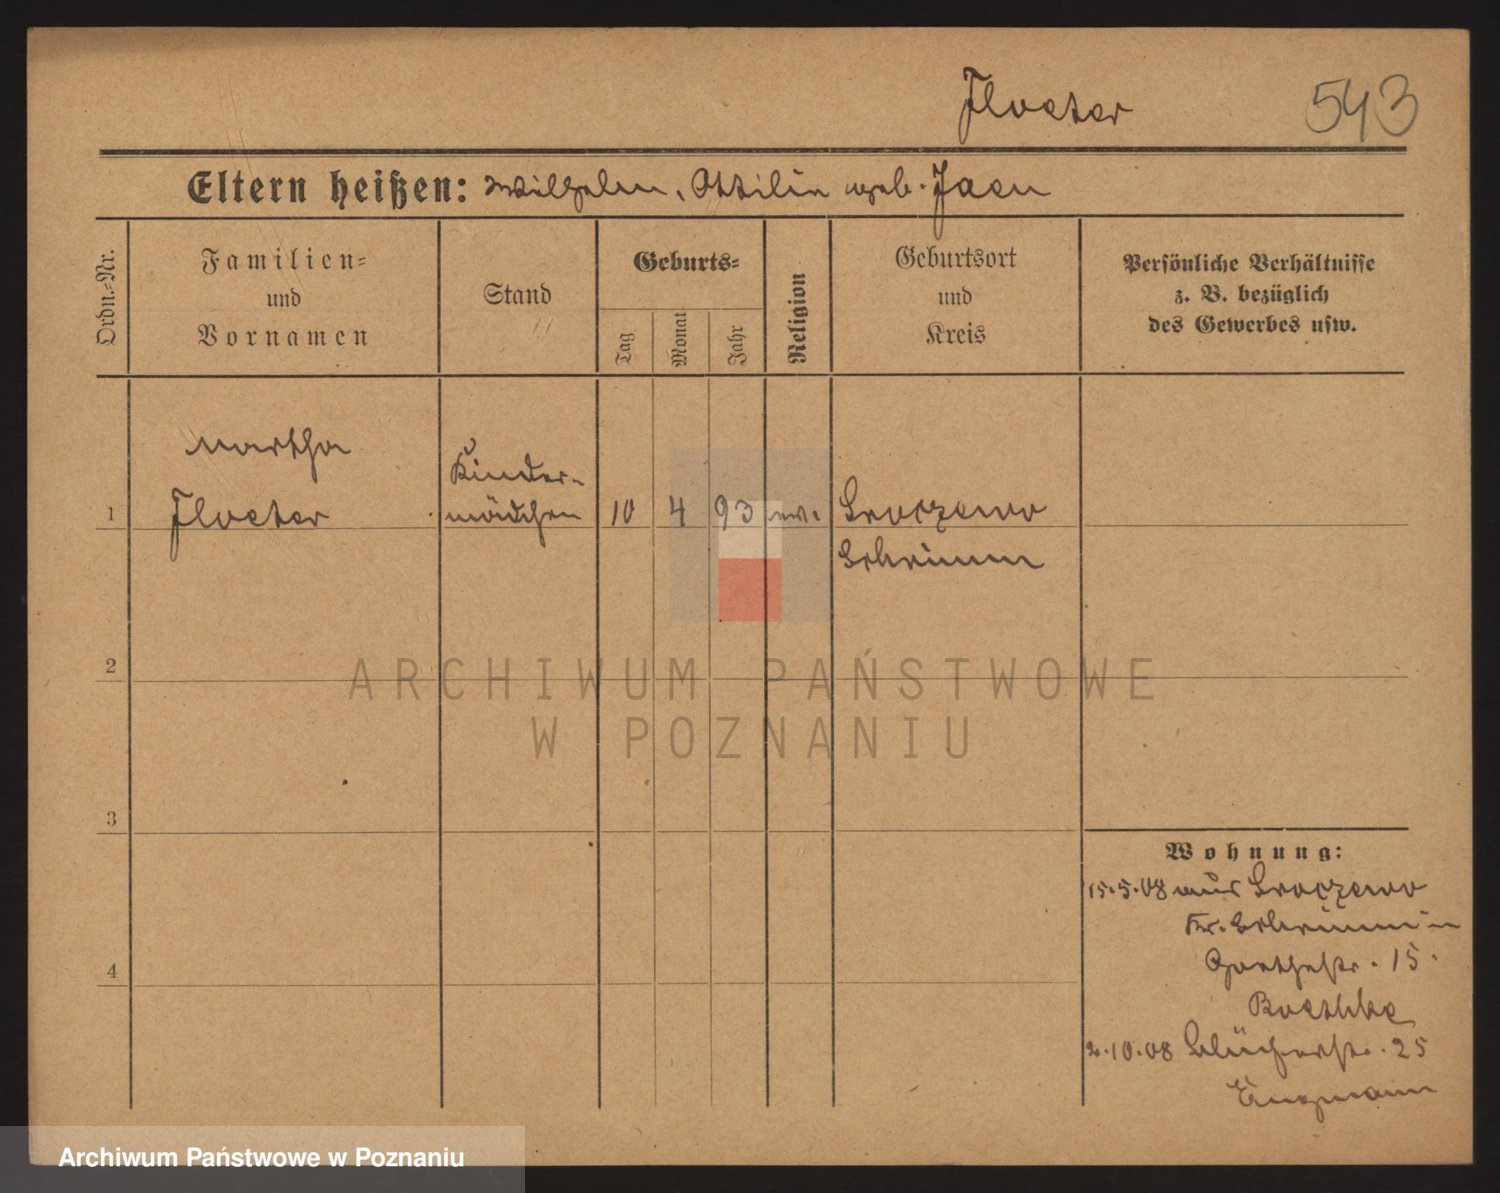 Floeter
543
Eltern heißen: Wilhelm, Ottilie geb. Jaen
Ordn.-Nr.
Familien-
und
Vornamen
Stand
Geburts-
Tag
Monat
Jahr
Religion
Geburtsort
und
Kreis
Persönliche Verhältnisse
z. B. bezüglich
des Gewerbes usw.
Martha
1 Floeter
Kinder-
mädchen
10 4 93 ev.
Schrimm
2
3
4
ARCHIWUM PAŃSTWOWE
W POZNANIU
Wohnung:
15.5.08 aus
Kr. Schrimm
Goethestr. 15.
2.10.08 Blücherstr. 25
Archiwum Państwowe w Poznaniu